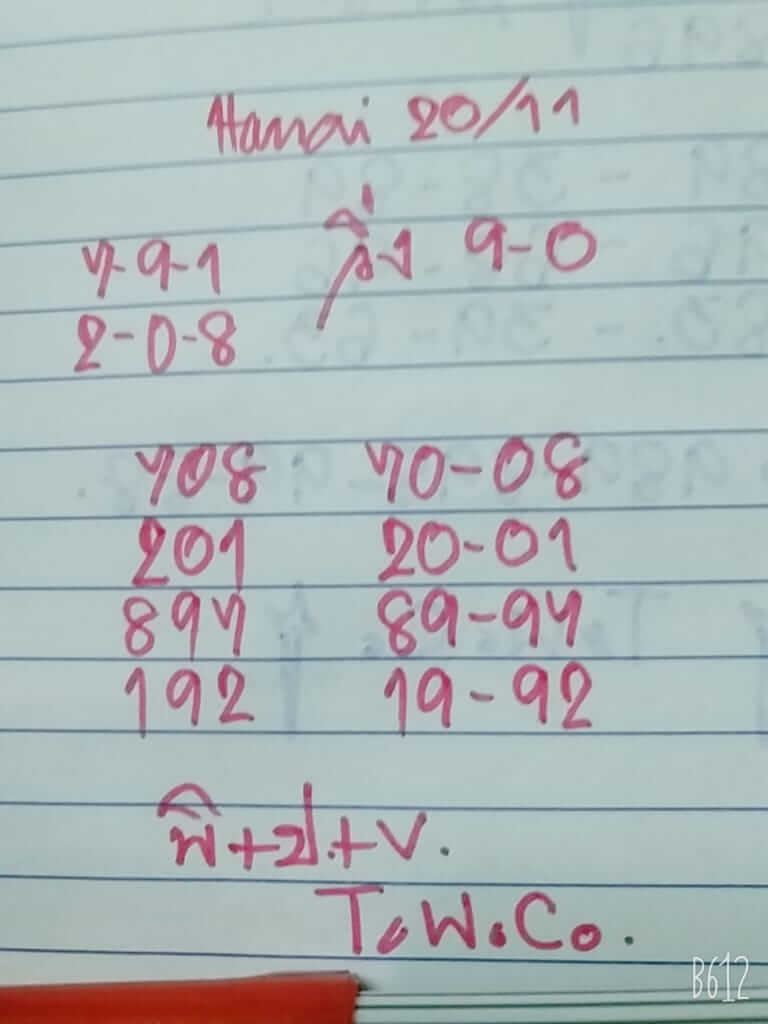 Hanoi 20/11
7-9-1 วิ่ง 9-0
2-0-8
708 70-08
201 20-01
897 89-97
192 19-92
พิ+ป.+V.
T.W.Co.
B612